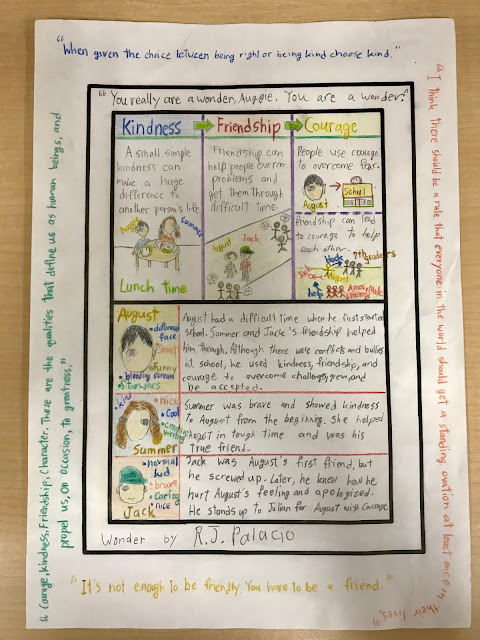 "When given the choice between being right or being kind choose kind."
"I think there should be a rule that everyone in the world should get a standing ovation at least once in their lives."
"Courage, Kindness, Friendship, Character. These are the qualities that define us as human beings, and
propel us, on occasion, to greatness."
"You really are a wonder, Auggie. You are a wonder."
Kindness Friendship Courage
A small simple
kindness can
make a huge
difference to
another person's life
August
Summer
Lunch time
Friendship can
help people overcom
problems and
get them through
difficult time.
August
Jack
People use courage
to overcome fear.
August
School
friendship can lead
to courage to help
each other.
7th graders
August
help
August
• different
face
funny
• starwars
August had a difficult time when he first started
school. Summer and Jack's friendship helped
him through. Although there were conflicts and bullies
at school, he used kindness, friendship, and
courage to overcome challenges, grew, and
be accepted.
• nice
• cool
Summer
Summer was brave and showed kindness
to August from the beginning. She helped
August in tough time and was his
true friend.
• normal
kid
• brave
• caring
nice
Jack
Jack was August's first friend, but
he screwed up. Later, he knew how he
hurt August's feeling and apologized.
He stands up to Julian for August with courage.
Wonder by R.J. Palacio
"It's not enough to be friendly. You have to be a friend."